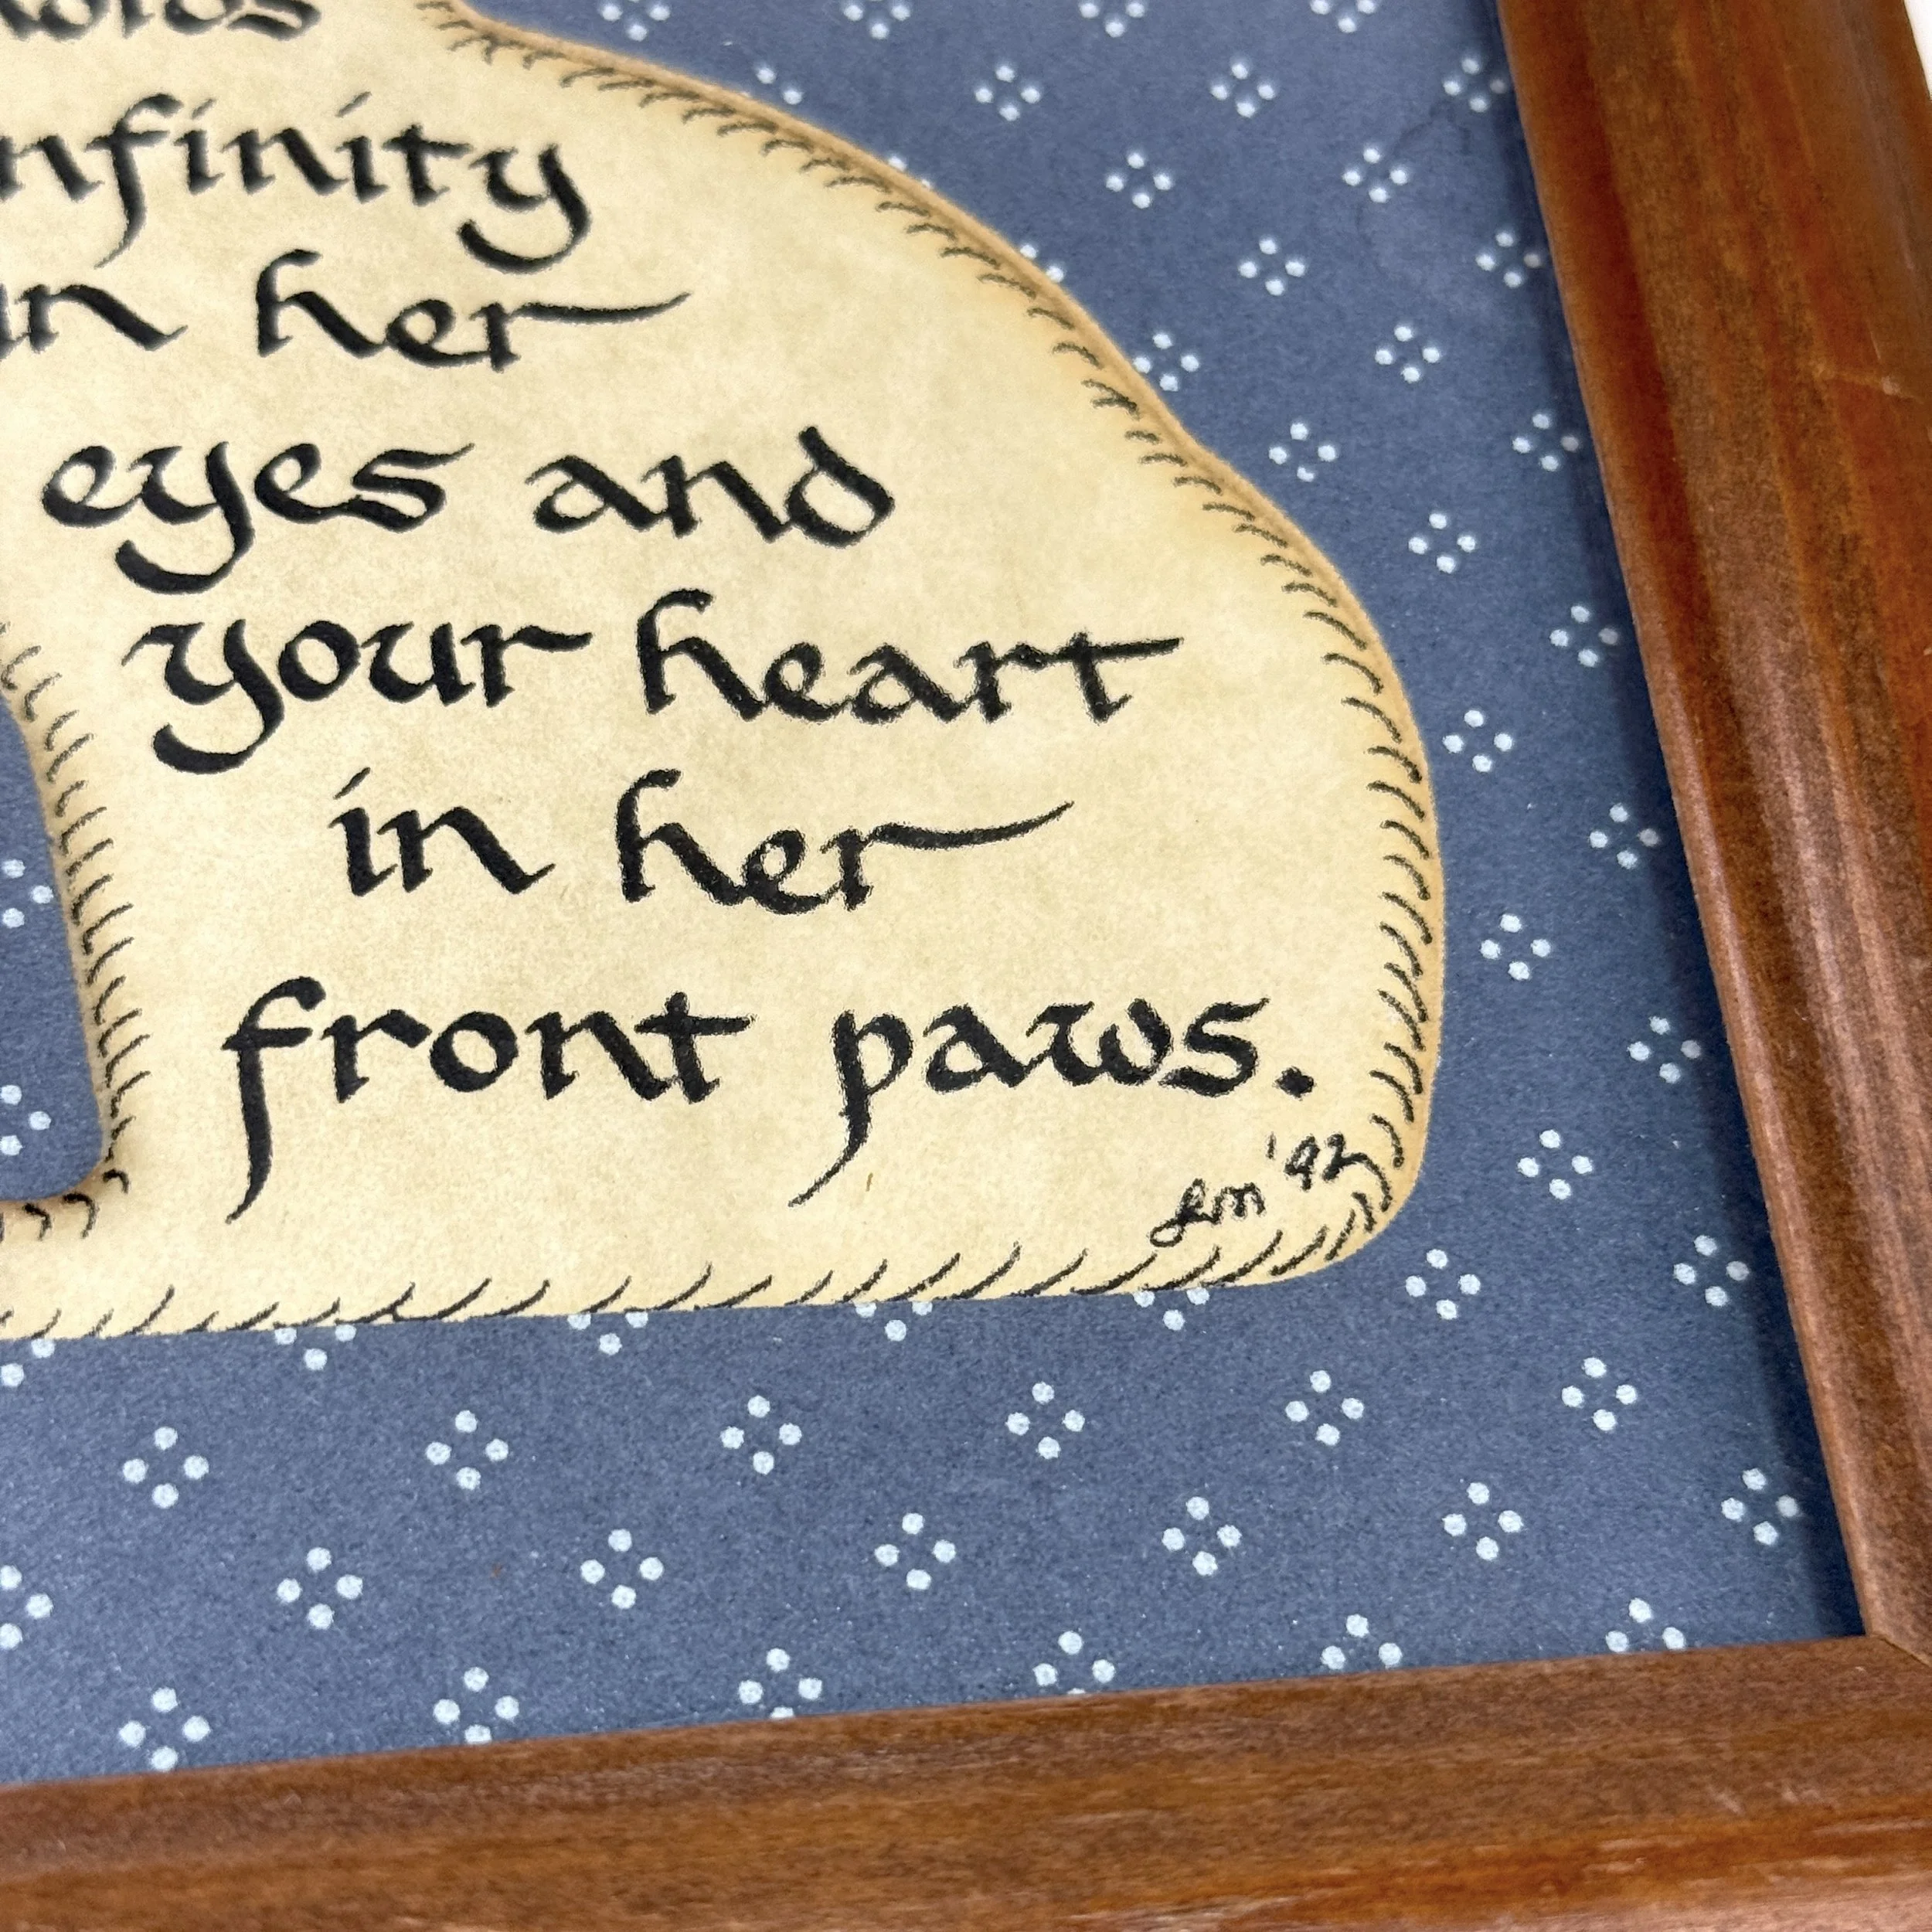 infinity
in her
eyes and
your heart
in her
front paws.
'92